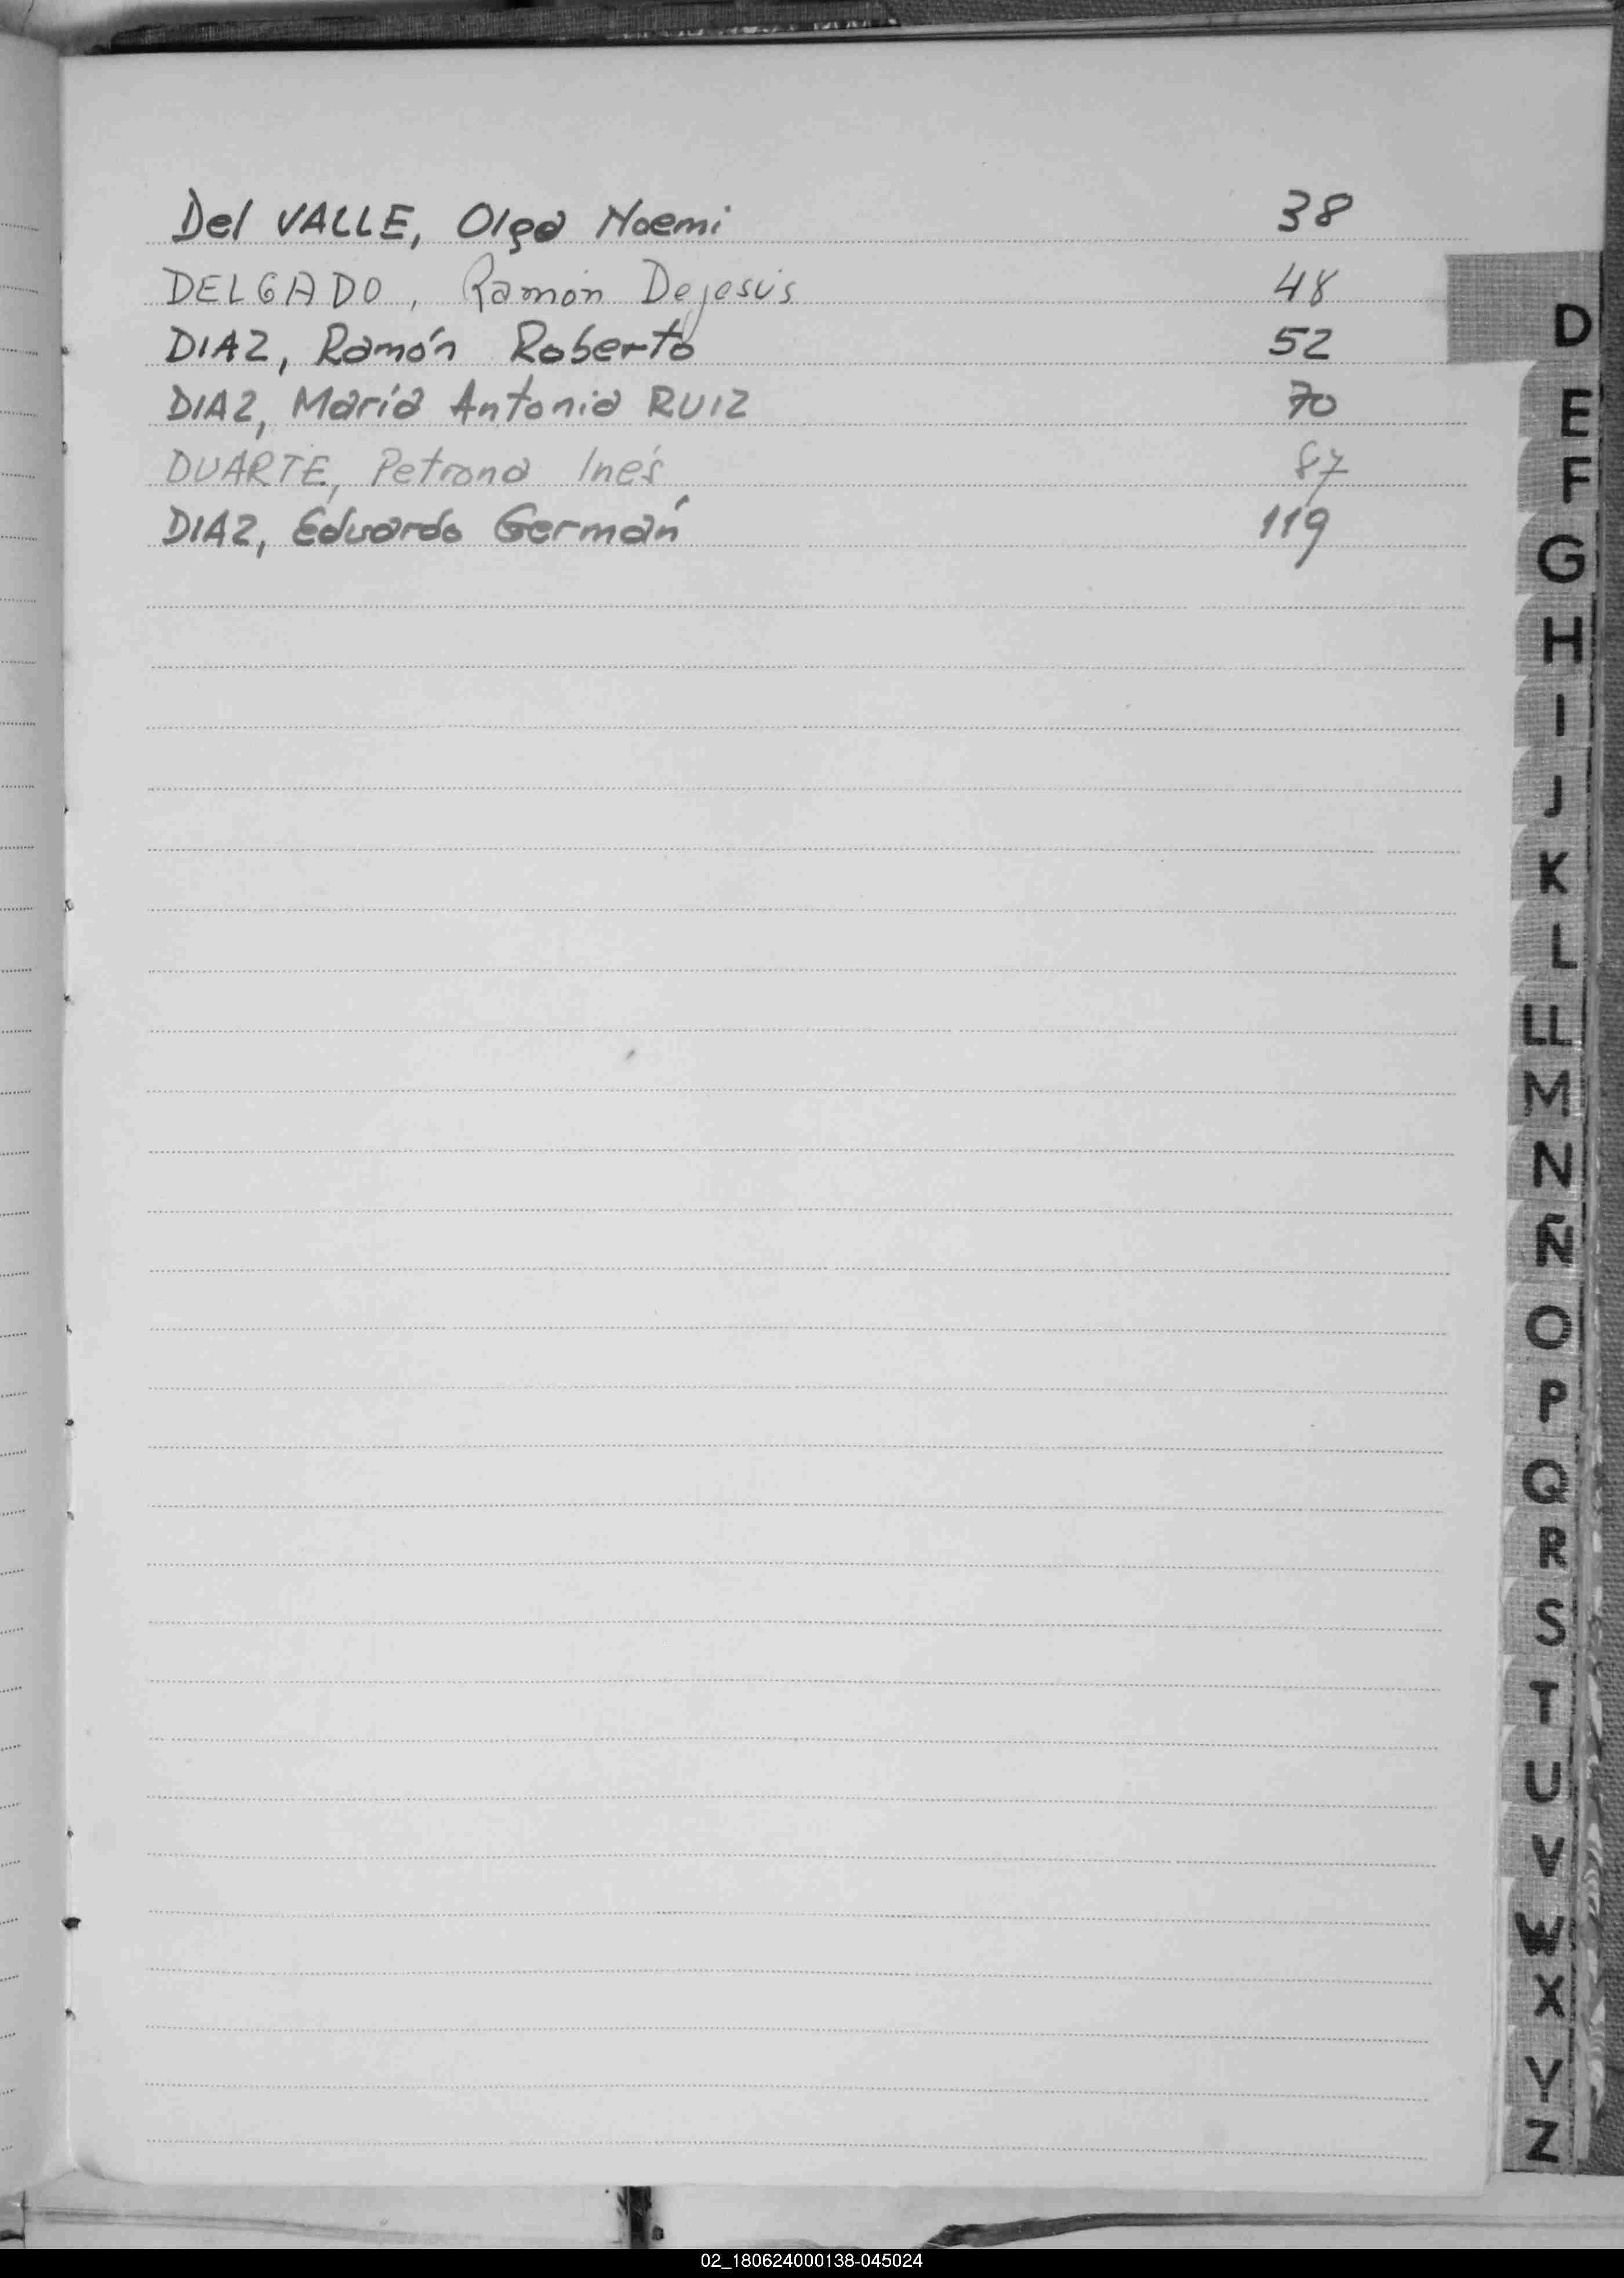 Del VALLE, Olga Noemi 38
DELGADO, Ramón Dejesús 48
DIAZ, Ramón Roberto 52
DIAZ, María Antonia RUIZ 70
DUARTE, Petrona Inés 87
DIAZ, Eduardo Germán 119
D
E
F
G
H
I
J
K
L
LL
M
N
Ñ
O
P
Q
R
S
T
U
V
W
X
Y
Z
02_180624000138-045024